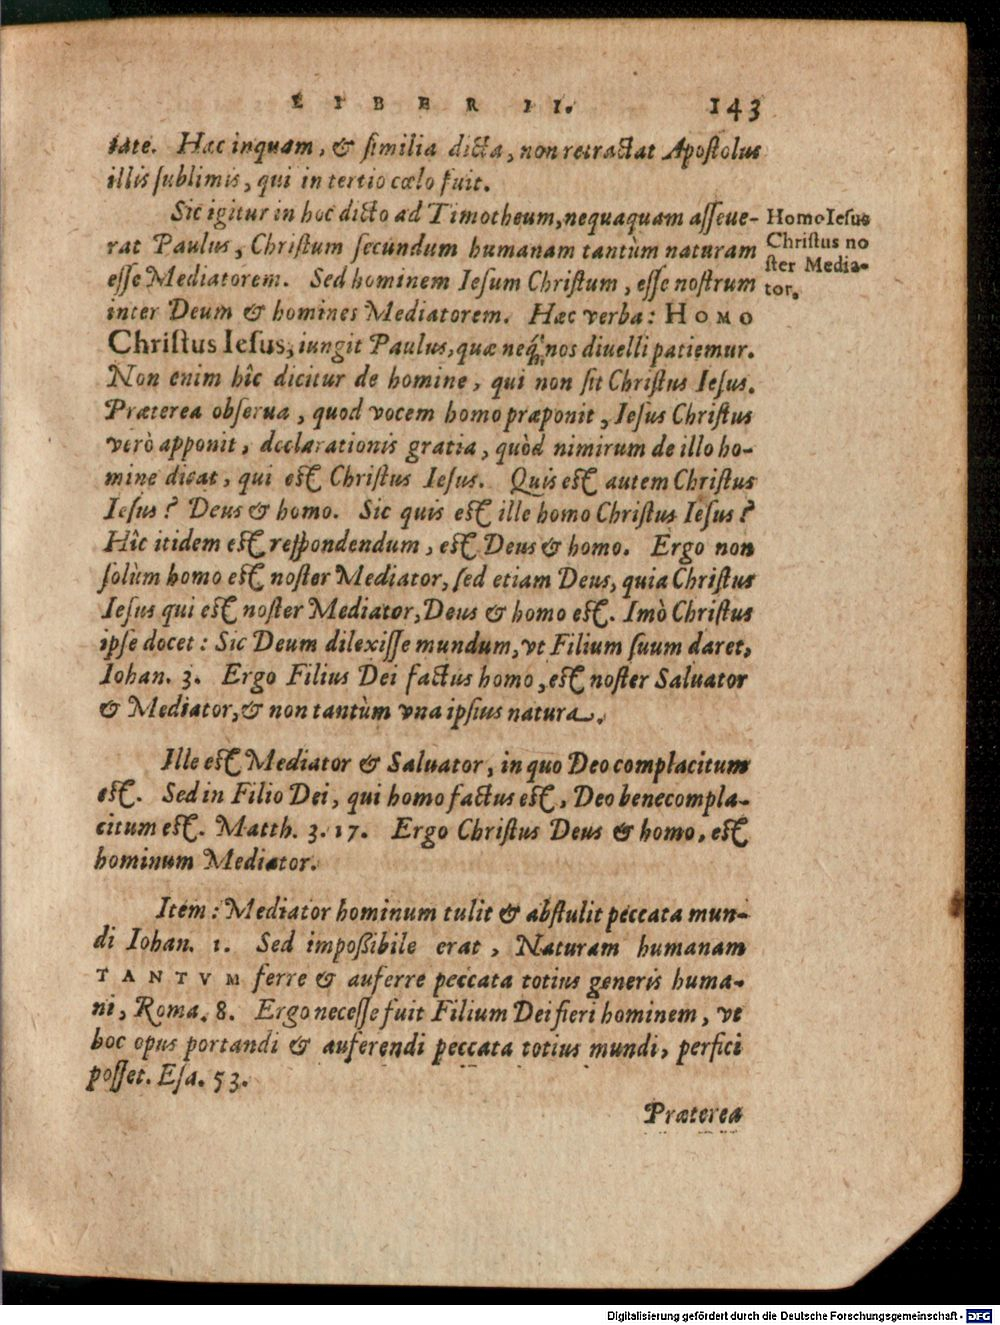 LIBER II. 143
tate. Hæc inquam, & ſimilia dicta, non retractat Apoſtolus
illis ſublimis, qui in tertio cœlo fuit.
Sic igitur in hoc dicto ad Timotheum, nequaquam aſſeue-
rat Paulus, Chriſtum ſecundum humanam tantùm naturam
eſſe Mediatorem. Sed hominem Ieſum Chriſtum, eſſe noſtrum
inter Deum & homines Mediatorem. Hæc verba: HOMO
Chriſtus Ieſus, iungit Paulus, quæ neq́; nos diuelli patiemur.
Non enim hîc dicitur de homine, qui non ſit Chriſtus Ieſus.
Præterea obſerua, quod vocem homo præponit, Ieſus Chriſtus
verò apponit, declarationis gratia, quòd nimirum de illo ho-
mine dicat, qui eſt Chriſtus Ieſus. Quis eſt autem Chriſtus
Ieſus? Deus & homo. Sic quis eſt ille homo Chriſtus Ieſus?
Hîc itidem eſt reſpondendum, eſt Deus & homo. Ergo non
ſolùm homo eſt noſter Mediator, ſed etiam Deus, quia Chriſtus
Ieſus qui eſt noſter Mediator, Deus & homo eſt. Imò Chriſtus
ipſe docet: Sic Deum dilexiſſe mundum, vt Filium ſuum daret,
Iohan. 3. Ergo Filius Dei factus homo, eſt noſter Saluator
& Mediator, & non tantùm vna ipſius natura.
Ille eſt Mediator & Saluator, in quo Deo complacitum
eſt. Sed in Filio Dei, qui homo factus eſt, Deo benecompla-
citum eſt. Matth. 3. 17. Ergo Chriſtus Deus & homo, eſt
hominum Mediator.
Item: Mediator hominum tulit & abſtulit peccata mun-
di Iohan. 1. Sed impoßibile erat, Naturam humanam
TANTVM ferre & auferre peccata totius generis huma-
ni, Roma. 8. Ergo neceſſe fuit Filium Dei fieri hominem, vt
hoc opus portandi & auferendi peccata totius mundi, perfici
poſſet. Eſa. 53.
Præterea
Homo Ieſus
Chriſtus no
ſter Media-
tor.
Digitalisierung gefördert durch die Deutsche Forschungsgemeinschaft - DFG